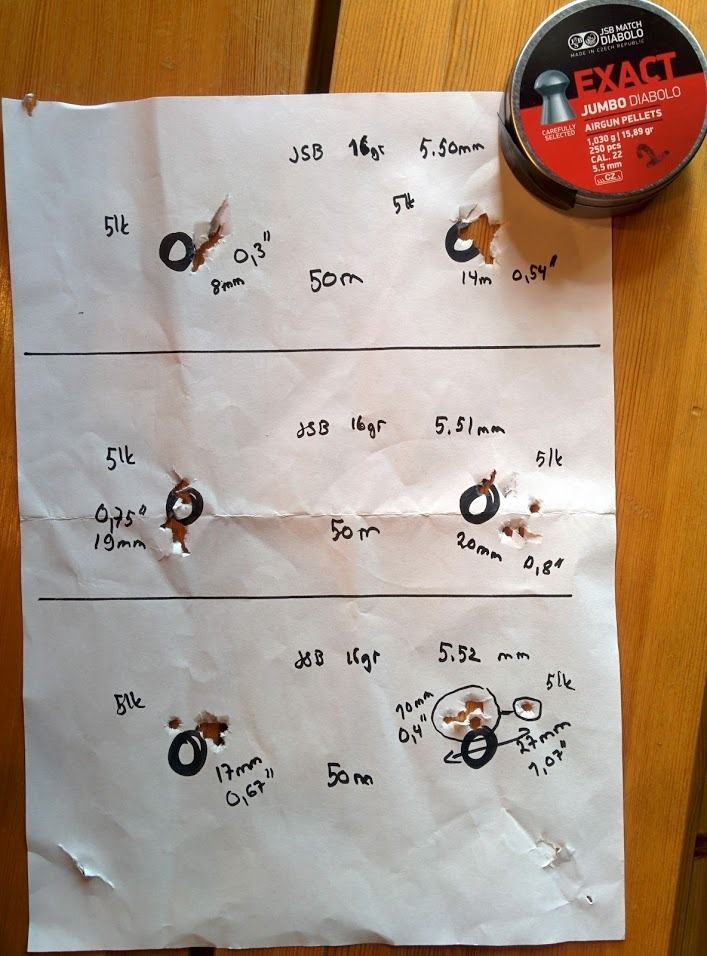 JSB MATCH
DIABOLO
MADE IN CZECH REPUBLIC
EXACT
JUMBO DIABOLO
CAREFULLY
SELECTED
AIRGUN PELLETS
1,030 g | 15,89 gr
250 pcs
CAL. 22
5.5 mm
CZ
JSB 16gr 5.50mm
5lk
5lk
0,3"
8mm
50m
14m 0,54"
JSB 16gr 5.51mm
5lk
5lk
0,75"
19mm
50m
20mm 0,8"
JSB 16gr 5.52 mm
5lk
5lk
10mm
0,4"
17mm
0,67"
50m
27mm
1,07"